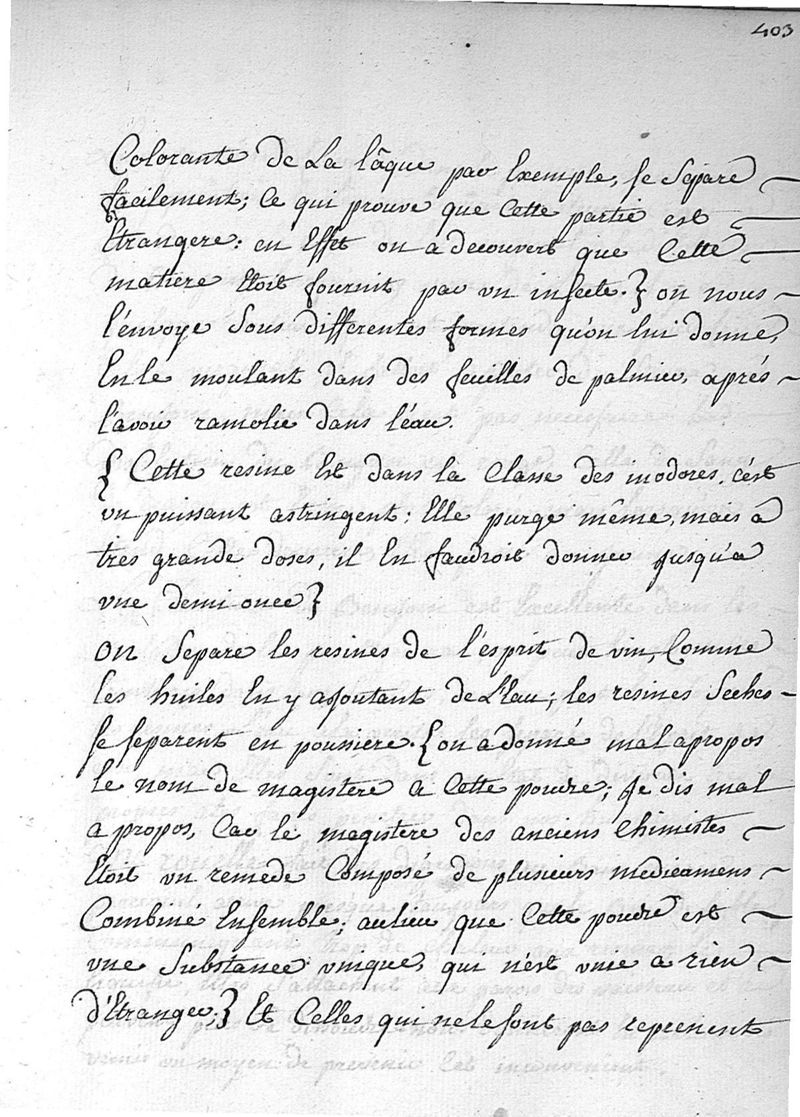 403
Colorante de La lâque par Exemple, se Separe
facilement; Ce qui prouve que Cette partie est
Etrangere: en Effet on a decouvert que Cette
matiere Etoit fournit par un insecte.} on nous
l'envoye Sous differentes formes qu'on lui donne,
En le moulant dans des feuilles de palmier, aprés
l'avoir ramolie dans l'éau.
{ Cette resine Est dans la Classe des inodores, c'ést
un puissant astringent: Elle purge même, mais à
tres grande doses, il En faudroit donner jusqu'a
une demi once}
on Separe les resines de l'ésprit de vin, Comme
les huiles En y ajoutant de L'Eau; les resines Seches
se separent en pousiere. {on a donné mal apropos
le nom de magistere a Cette poudre; je dis mal
a propos, Car le magistere des anciens Chimistes
Etoit un remede Composé de plusieurs medicamens
Combiné Ensemble; aulieu que Cette poudre est
une Substance unique, qui n'ést unie a rien
d'Etranger.} Et Celles qui ne le sont pas reprenent